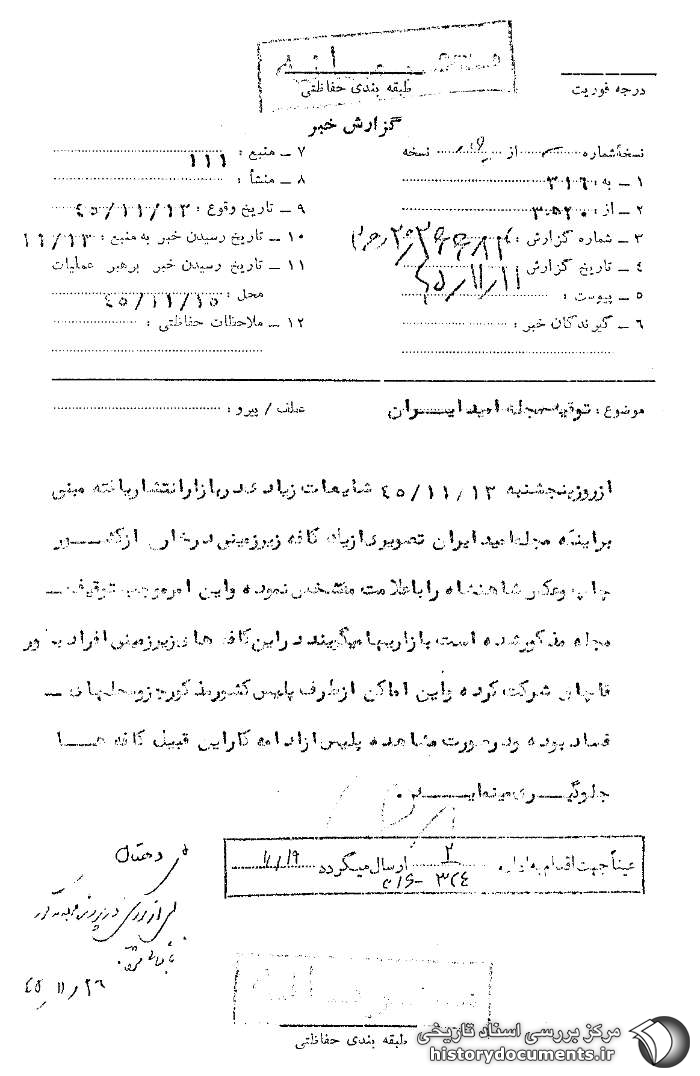 محرمانه
درجه فوریت
طبقه بندی حفاظتی
گزارش خبر
نسخهٔ شماره از نسخه
۱ ـ به: ۳۱۶
۲ ـ از: ۳۵۲۰
۳ ـ شماره گزارش:
۴ ـ تاریخ گزارش ۴۵/۱۱/۱۱
۵ ـ پیوست:
۶ ـ گیرندگان خبر:
۷ ـ منبع: ۱۱۱
۸ ـ منشأ:
۹ ـ تاریخ وقوع: ۴۵/۱۱/۱۳
۱۰ ـ تاریخ رسیدن خبر به منبع: ۱۱/۱۳
۱۱ ـ تاریخ رسیدن خبر برهبر عملیات
محل: ۴۵/۱۱/۱۵
۱۲ ـ ملاحظات حفاظتی:
موضوع: توقیف مجله امید ایران
عطف / پیرو:
از روز پنجشنبه ۴۵/۱۱/۱۳ شایعات زیادی در بازار انتشار یافته مبنی
بر اینکه مجله امید ایران تصویری از یک کافه زیرزمینی در خارج از کشور
چاپ و عکس شاهنشاه را با علامت مشخص نموده و این امر موجب توقیف ـ
مجله مذکور شده است بازاریها میگویند در این کافه های زیرزمینی افراد بطور
قاچاق شرکت کرده و این اماکن از طرف پلیس کشور مذکور جزو محلهای ـ
فساد بوده و در صورت مشاهده پلیس از ادامه کار این قبیل کافه ها
جلوگیری مینماید.
عیناً جهت اقدام به اداره ۳۲۴ ارسال میگردد ۱۱/۱۹
۳۱۶
۴۵/۱۱/۲۶
طبقه بندی حفاظتی
مرکز بررسی اسناد تاریخی
historydocuments.ir